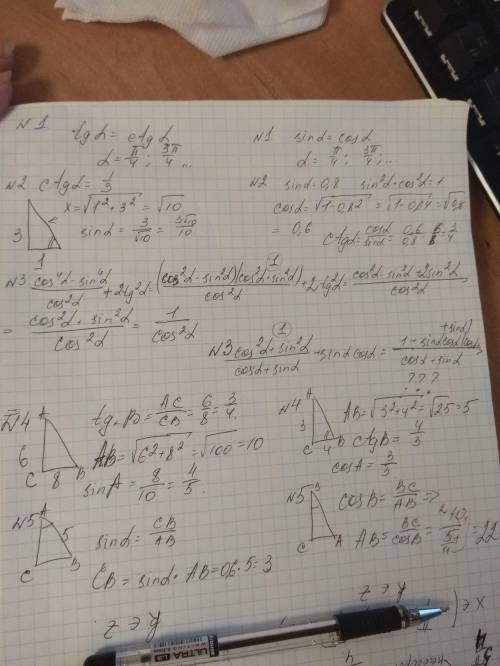 N1
tgα = ctgα
α = π/4; 3π/4 ...
N2 ctgα = 1/3
x = √(1² + 3²) = √10
sinα = 3/√10 = 3√10/10
3
1
N1 sinα = cosα
α = π/4; 3π/4; ...
N2 sinα = 0,8 sin²α + cos²α = 1
cosα = √(1 - 0,8²) = √(1 - 0,64) = √0,8
= 0,6 ctgα = cosα/sinα = 0,6/0,8 = 6/8 = 3/4
N3 (cos⁴α - sin⁴α)/cos²α + 2tg²α = (cos²α - sin²α)(cos²α + sin²α)/cos²α + 2tg²α = (cos²α - sin²α + 2sin²α)/cos²α
1
= (cos²α + sin²α)/cos²α = 1/cos²α
N3 (cos²α + sin²α)/(cosα + sinα) + sinα cosα = (1 + sinα cosα(cosα + sinα))/(cosα + sinα)
1
???
N4
A
6
C 8 B
tg B = AC/CB = 6/8 = 3/4
AB = √(6² + 8²) = √100 = 10
sin A = 8/10 = 4/5
N4
A
3
C 4 B
AB = √(3² + 4²) = √25 = 5
ctg B = 4/3
cos A = 3/5
N5
A
5
C B
sinα = CB/AB
CB = sinα · AB = 0,6 · 5 = 3
N5
B
C A
cos B = BC/AB =>
AB = BC/cos B = = 22
k ∈ Z
k ∈ Z
x ∈ (
ULTRA